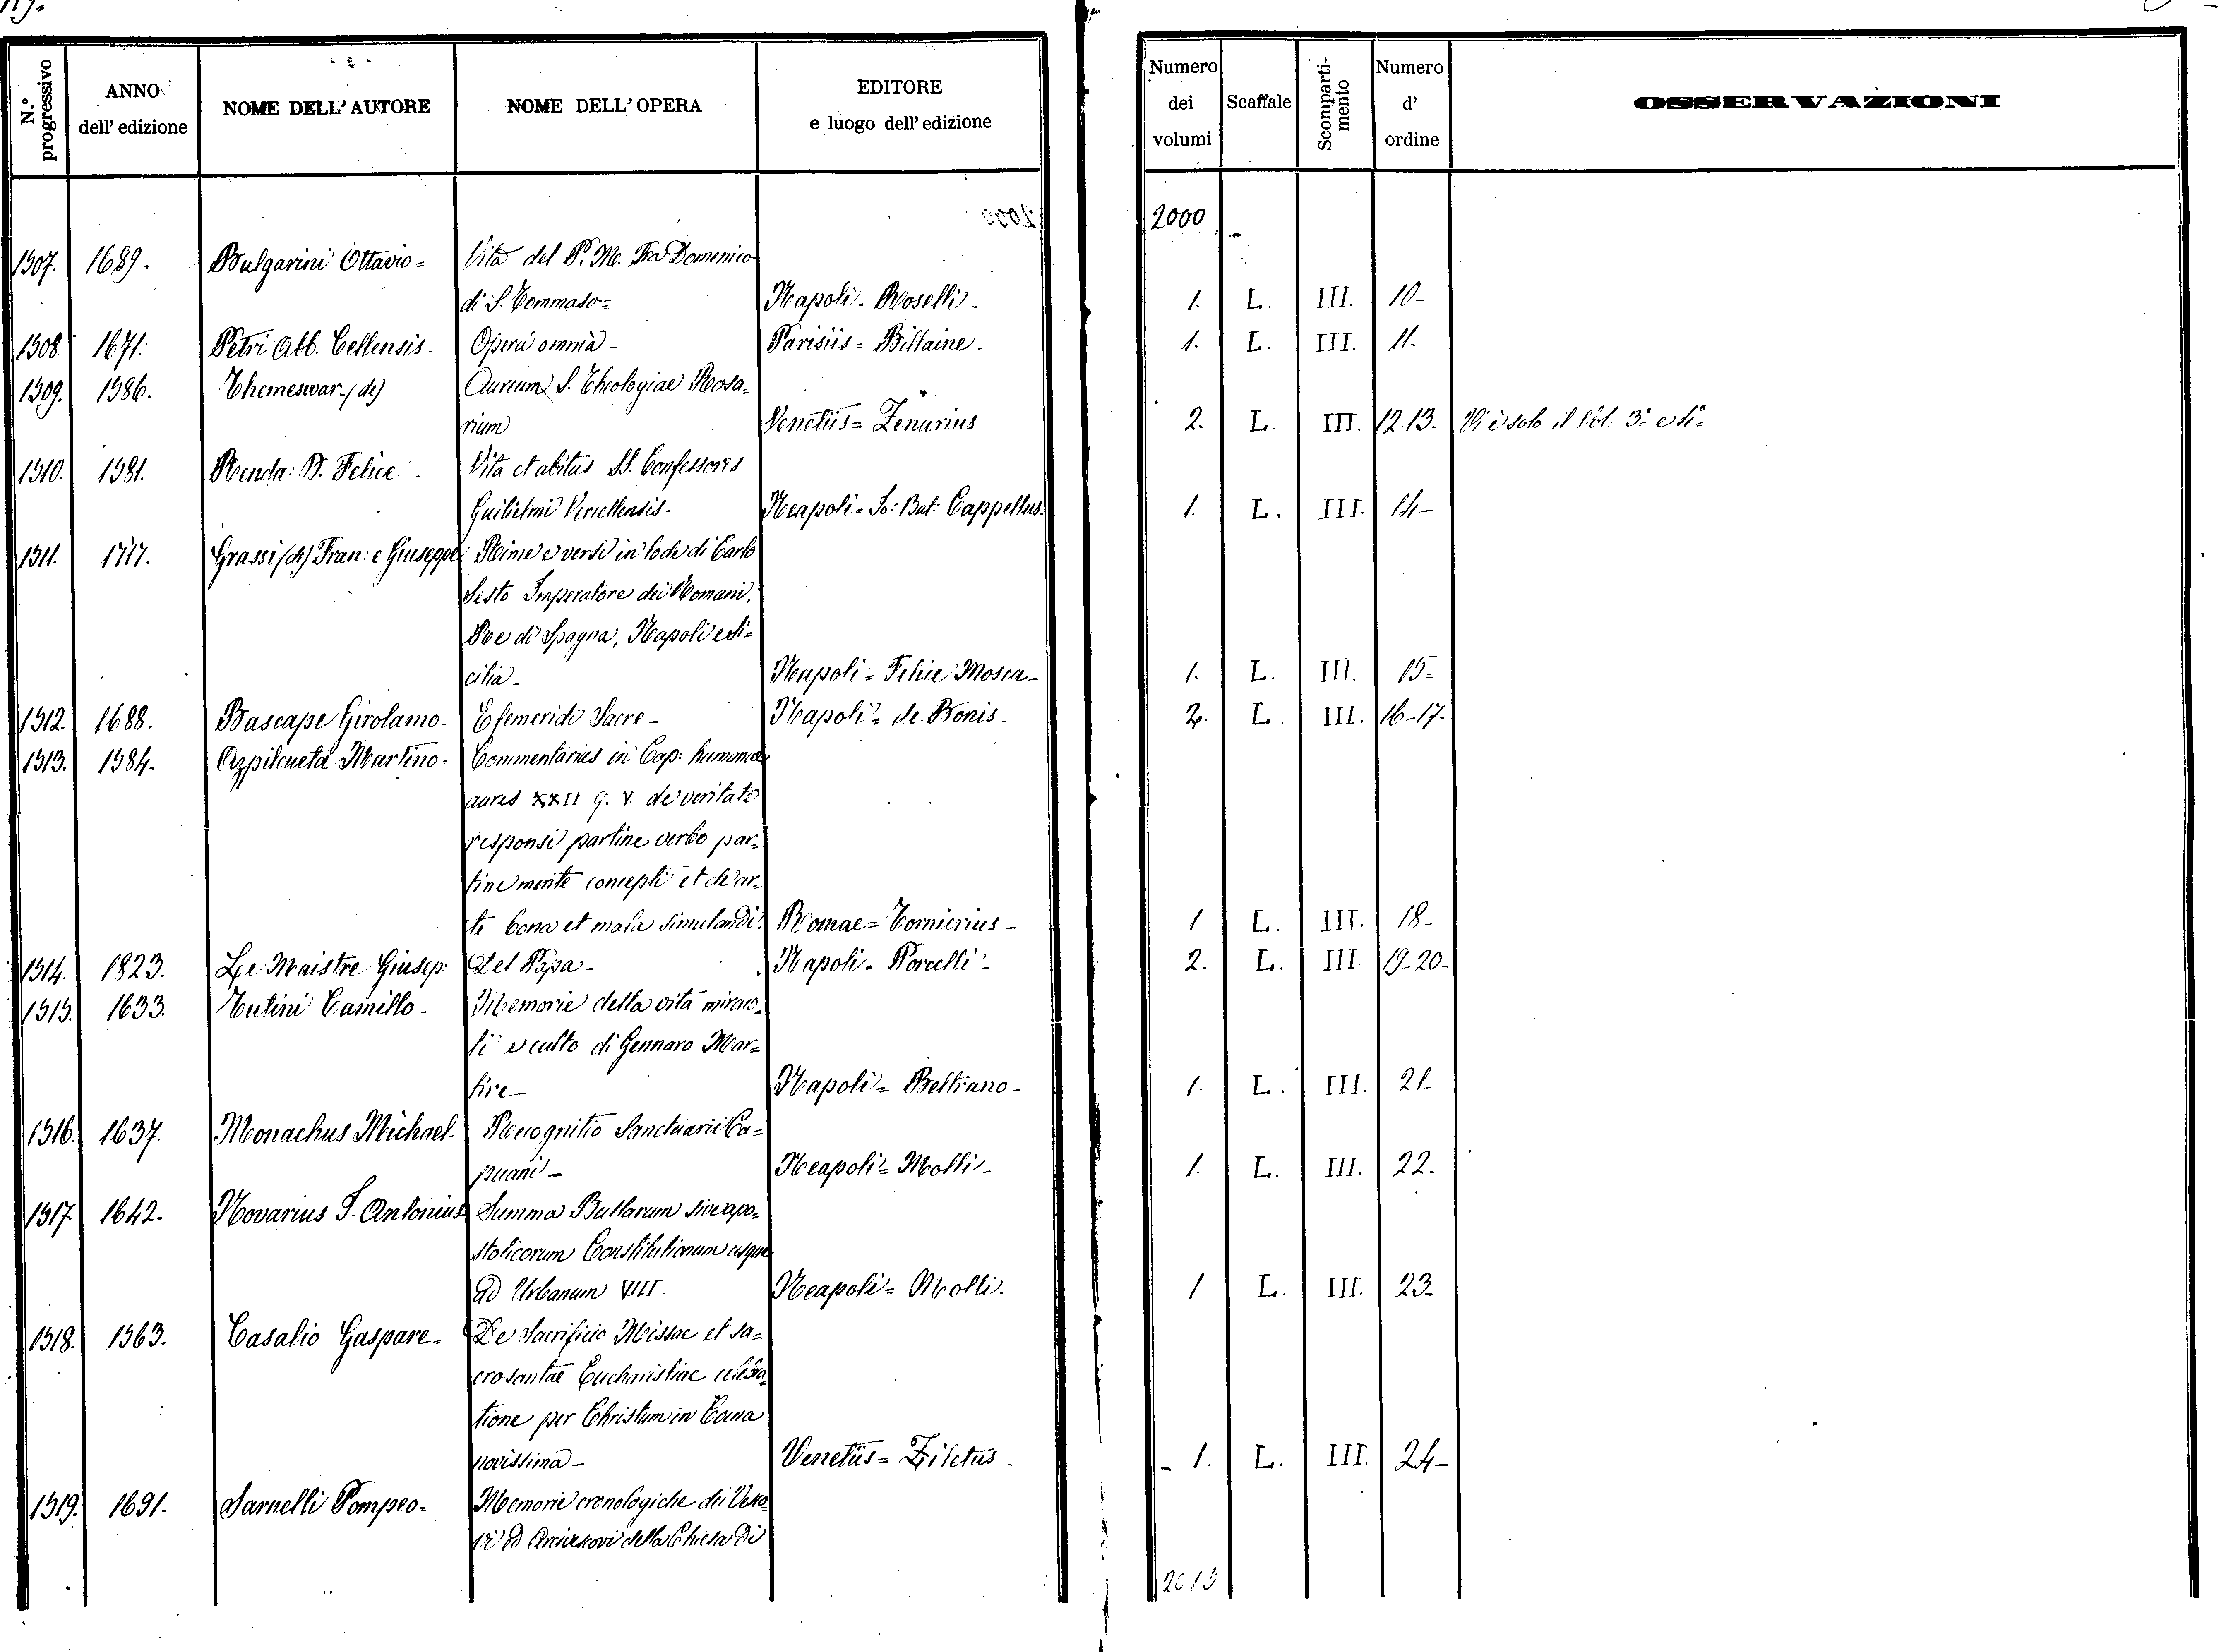 N.° progressivo
ANNO dell' edizione
NOME DELL' AUTORE
NOME DELL' OPERA
EDITORE e luogo dell' edizione
Numero dei volumi
Scaffale
Scomparti-mento
Numero d' ordine
OSSERVAZIONI
2000
1507. 1689. Bulgarini Ottavio= Vita del P. M. Fra Domenico
di S. Tommaso= Napoli- Roselli- 1. L. III. 10-
1508. 1671. Petri Abb. Cellensis. Opera omnia- Parisiis= Billaine- 1. L. III. 11.
1509. 1586. Themeswar-(de) Aureum S. Theologiae Rosa=
rium Venetiis= Zenarius 2. L. III. 12.13. Vi è solo il Vol. 3° e 4°=
1510. 1581. Renda: D. Felice. Vita et obitus SS. Confessoris
Guilielmi Vercellensis- Neapoli= Jo: Bat: Cappellus. 1. L. III. 14-
1511. 1717. Grassi (de) Fran: e Giuseppe: Rime e versi in lode di Carlo
Sesto Imperatore dei Romani,
Re di Spagna, Napoli e Si=
cilia- Napoli= Felice Mosca- 1. L. III. 15=
1512. 1688. Bascape Girolamo. Efemeridi Sacre- Napoli= de Bonis. 2. L. III. 16-17.
1513. 1584. Azpilcueta Martino. Commentarius in Cap: humanae
aures XXII q. V. de veritate
responsi partine verbo par=
tine mente concepti et de ar=
te bona et mala simulandi. Romae= Tornierius- 1. L. III. 18-
1514. 1823. Le Maistre Giusep: Del Papa- Napoli- Porcelli- 2. L. III. 19-20-
1515. 1633. Tutini Camillo- Memorie della vita miraco=
li e culto di Gennaro Mar=
tire- Napoli= Beltrano- 1. L. III. 21-
1516. 1637. Monachus Michael- Recognitio Sanctuarii Ca=
puani- Neapoli= Molli- 1. L. III. 22-
1517. 1642. Novarius J. Antonius Summa Bullarum sive apo=
stolicorum Constitutionum usque
ad Urbanum VIII. Neapoli= Molli. 1. L. III. 23-
1518. 1563. Casalio Gaspare= De Sacrificio Missae et sa=
crosantae Eucharistiae celebra=
tione per Christum in Cœna
novissima- Venetiis= Ziletus- 1. L. III. 24-
1519. 1691. Sarnelli Pompeo- Memorie cronologiche dei Vesco=
vi ed Arcivescovi della Chiesa di